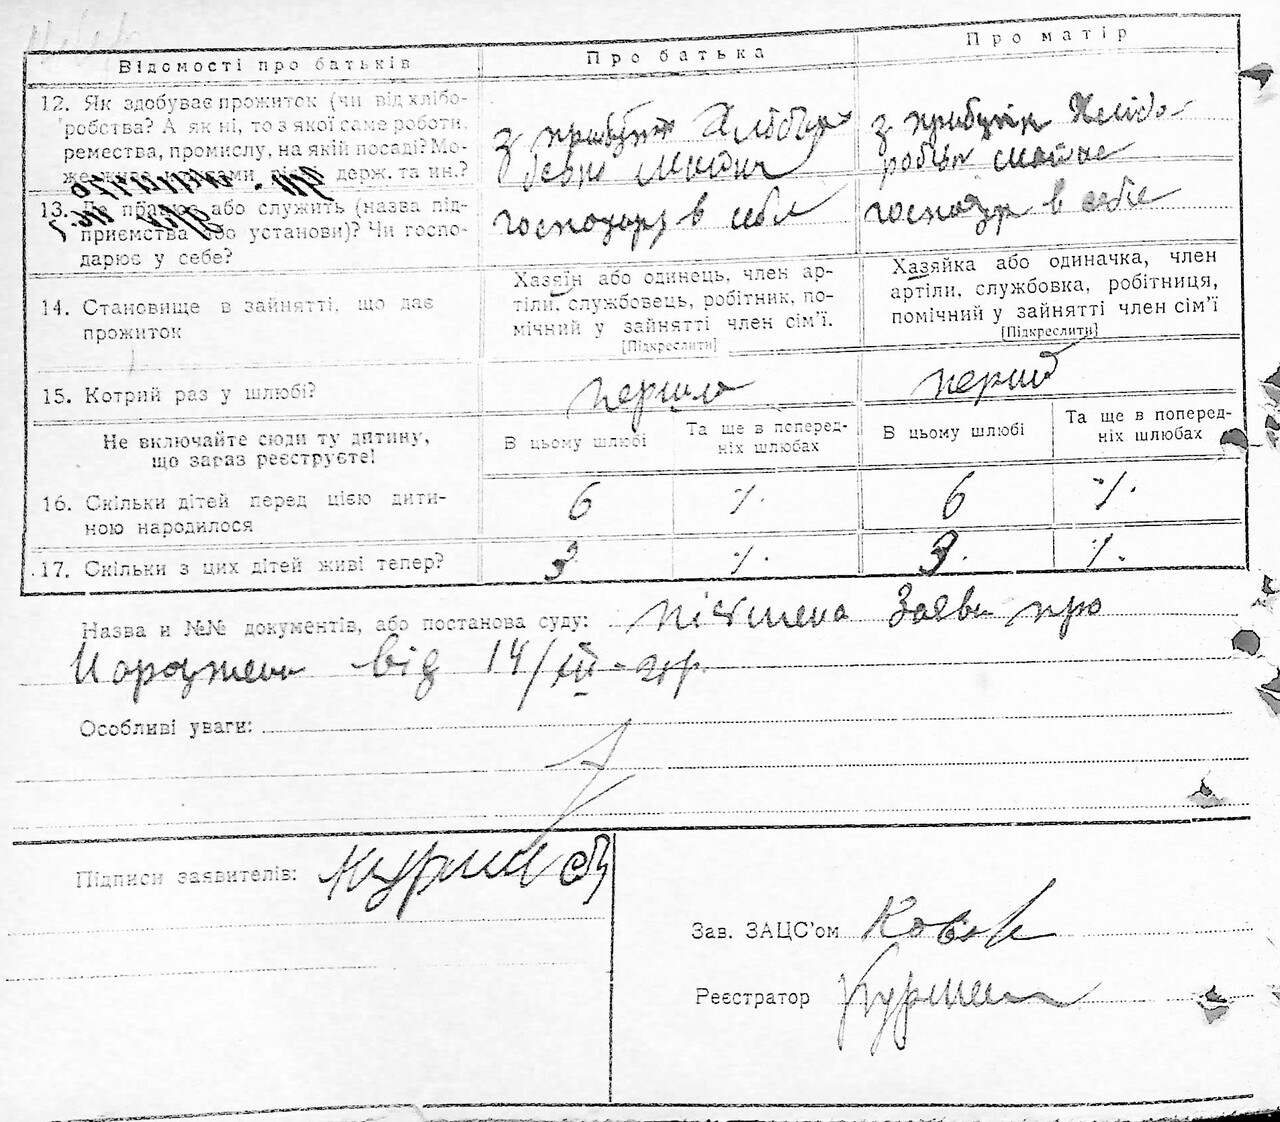 Відомості про батьків
Про батька
Про матір
12. Як здобуває прожиток (чи від хлібо-
робства? А як ні, то з якої саме роботи,
ремества, промислу, на якій посаді? Мо-
же живе держ. та ин.?
з прибутк
з прибутк Хлібо-
13. Де працює або служить (назва під-
приємства або установи)? Чи госпо-
дарює у себе?
господар в себе
господар в себе
14. Становище в зайнятті, що дає
прожиток
Хазяїн або одинець, член ар-
тіли, службовець, робітник, по-
мічний у зайнятті член сім’ї.
[Підкреслити]
Хазяйка або одиначка, член
артіли, службовка, робітниця,
помічний у зайнятті член сім’ї
[Підкреслити]
15. Котрий раз у шлюбі?
перший
Не включайте сюди ту дитину,
що зараз реєструєте!
В цьому шлюбі
Та ще в поперед-
ніх шлюбах
В цьому шлюбі
Та ще в поперед-
ніх шлюбах
16. Скільки дітей перед цією дити-
ною народилося
6 ٪ 6 ٪
17. Скільки з цих дітей живі тепер?
3 ٪ 3. ٪
Назва и №№ документів, або постанова суду: Заява про
від 14/XII
Особливі уваги:
Підписи заявителів:
Зав. ЗАЦС’ом
Реєстратор